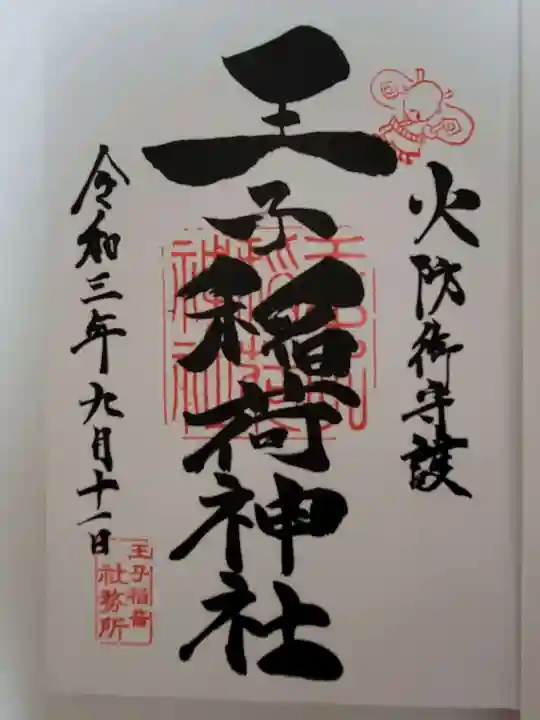 火防御守護
王子稲荷神社
令和三年九月十一日
王子稲荷
社務所